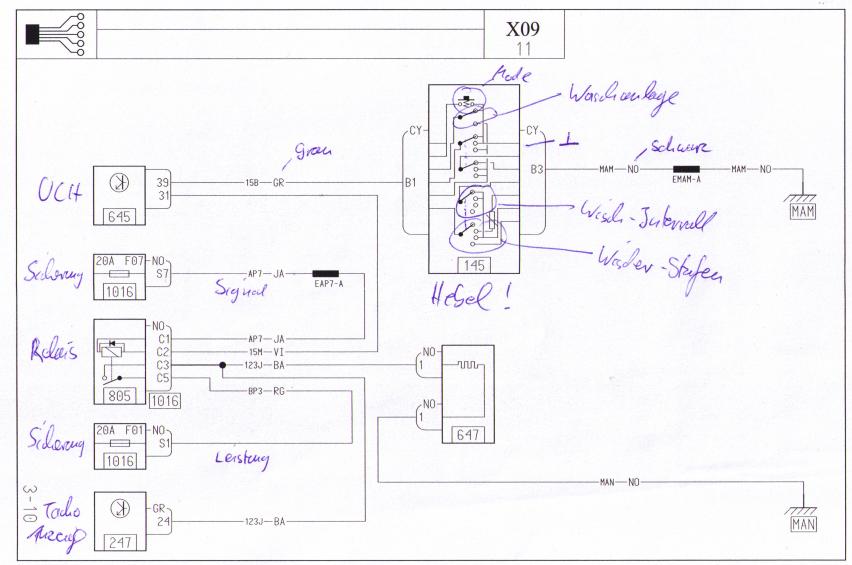 X09
11
Mode
Waschanlage
Grau
CY
CY
Schwarz
UCH
39
15B GR
B1
B3
MAM NO
EMAM-A
MAM NO
31
645
MAM
Wisch-Intervall
Sicherung
20A F07
NO
S7
AP7 JA
EAP7-A
1016
Signal
145
Wischer-Stufen
Hebel!
Relais
NO
C1
AP7 JA
C2
15M VI
C3
123J BA
NO
1
C5
805
1016
BP3 RG
Sicherung
20A F01
NO
S1
NO
1
1016
Leistung
647
MAN NO
3-10
Tacho
Anzeige
GR
24
123J BA
247
MAN